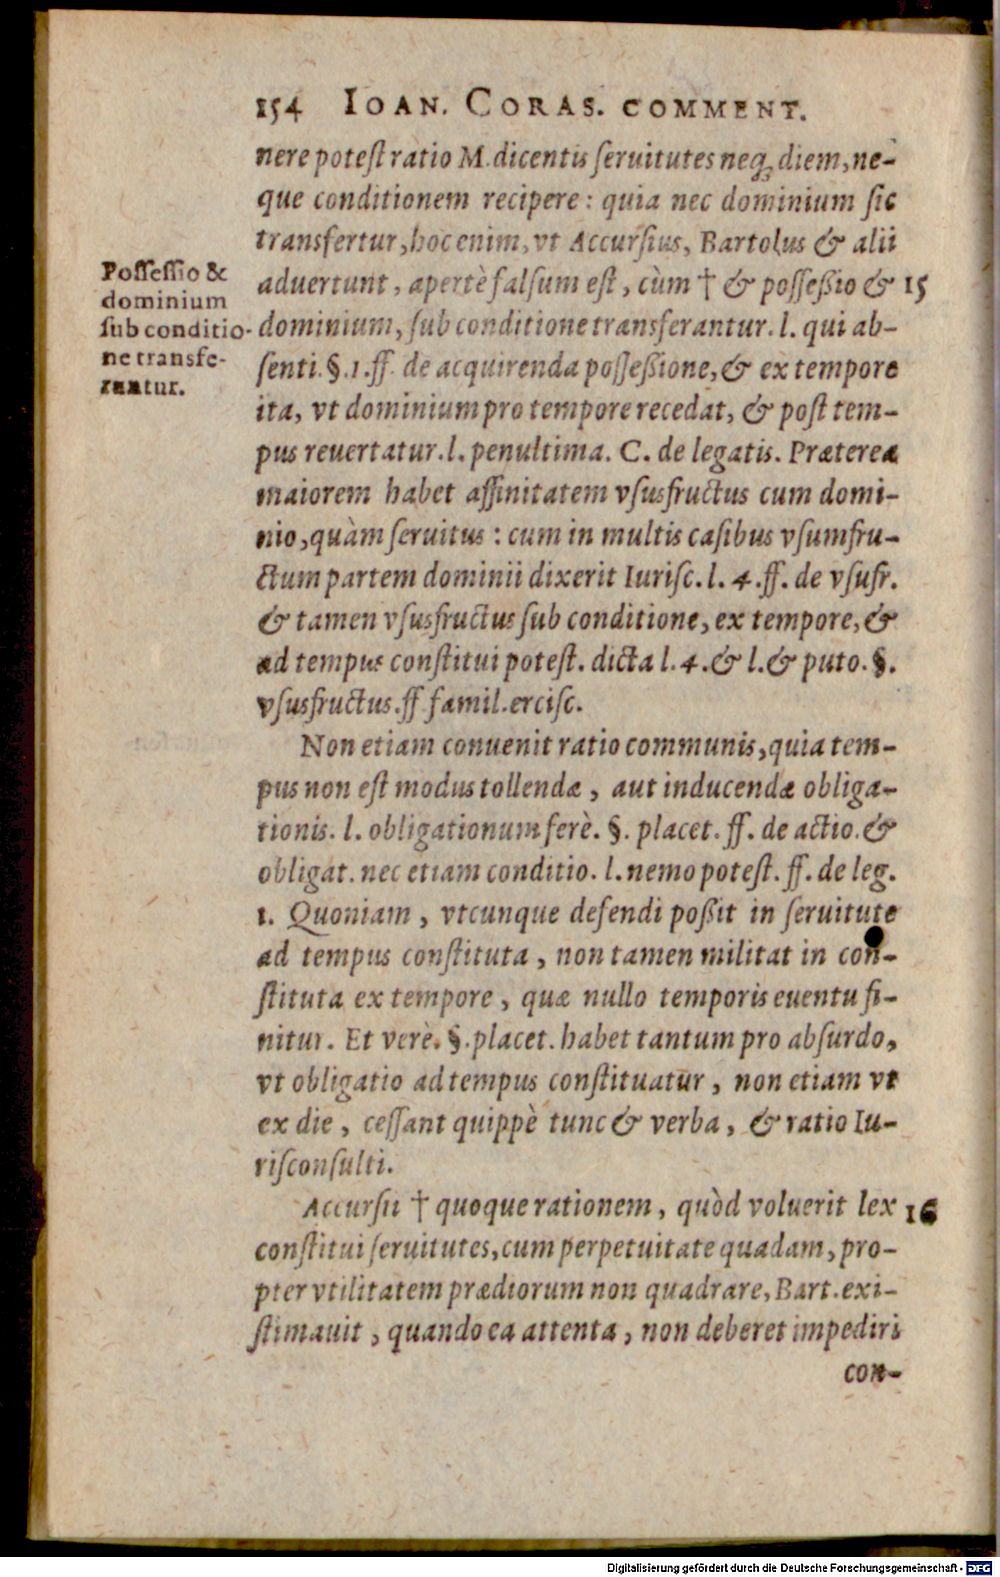 154 IOAN. CORAS. COMMENT.
nere potest ratio M. dicentis seruitutes neq; diem, ne-
que conditionem recipere: quia nec dominium sic
transfertur, hoc enim, vt Accursius, Bartolus & alii
aduertunt, apertè falsum est, cùm † & possessio & 15
dominium, sub conditione transferantur. l. qui ab-
senti. §. 1. ff. de acquirenda possessione, & ex tempore
ita, vt dominium pro tempore recedat, & post tem-
pus reuertatur. l. penultima. C. de legatis. Præterea
maiorem habet affinitatem vsusfructus cum domi-
nio, quàm seruitus: cum in multis casibus vsumfru-
ctum partem dominii dixerit Iurisc. l. 4. ff. de vsufr.
& tamen vsusfructus sub conditione, ex tempore, &
ad tempus constitui potest. dicta l. 4. & l. & puto. §.
vsusfructus. ff famil. ercisc.
Possessio &
dominium
sub conditio-
ne transfe-
rantur.
Non etiam conuenit ratio communis, quia tem-
pus non est modus tollendæ, aut inducendæ obliga-
tionis. l. obligationum ferè. §. placet. ff. de actio. &
obligat. nec etiam conditio. l. nemo potest. ff. de leg.
1. Quoniam, vtcunque defendi possit in seruitute
ad tempus constituta, non tamen militat in con-
stituta ex tempore, quæ nullo temporis euentu fi-
nitur. Et verè. §. placet. habet tantum pro absurdo,
vt obligatio ad tempus constituatur, non etiam vt
ex die, cessant quippè tunc & verba, & ratio Iu-
risconsulti.
Accursii † quoque rationem, quòd voluerit lex 16
constitui seruitutes, cum perpetuitate quadam, pro-
pter vtilitatem prædiorum non quadrare, Bart. exi-
stimauit, quando ea attenta, non deberet impediri
con-
Digitalisierung gefördert durch die Deutsche Forschungsgemeinschaft - DFG